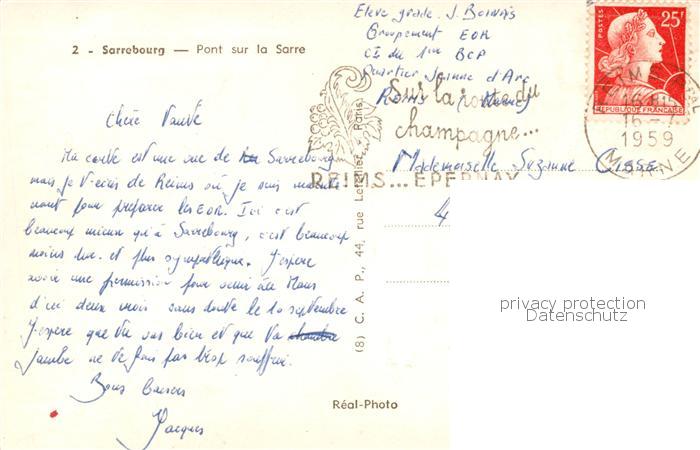 2 - Sarrebourg — Pont sur la Sarre
Elève gradé. J.
Groupement EOR
CI du 1er BCP
Quartier Jeanne d'Arc
Reims (Marne)
POSTES
25F
REPUBLIQUE FRANÇAISE
REIMS
16 -7
1959
MARNE
Sur la route du
champagne...
REIMS... EPERNAY
Mademoiselle Suzanne Cisse
4
Chère
Ma carte est une vue de Sarrebourg
mais je t'écris de Reims où je suis mainte
nant pour préparer les EOR. Ici c'est
beaucoup mieux qu'à Sarrebourg, c'est beaucoup
moins dur et plus sympathique. J'espère
avoir une permission pour venir au Mans
d'ici deux mois sans doute le 10 septembre
J'espère que tu vas bien et que ta
jambe ne te fait pas trop souffrir.
Bons baisers
Jacques
(8) C. A. P., 44, rue Letellier, Paris
Réal-Photo
privacy protection
Datenschutz